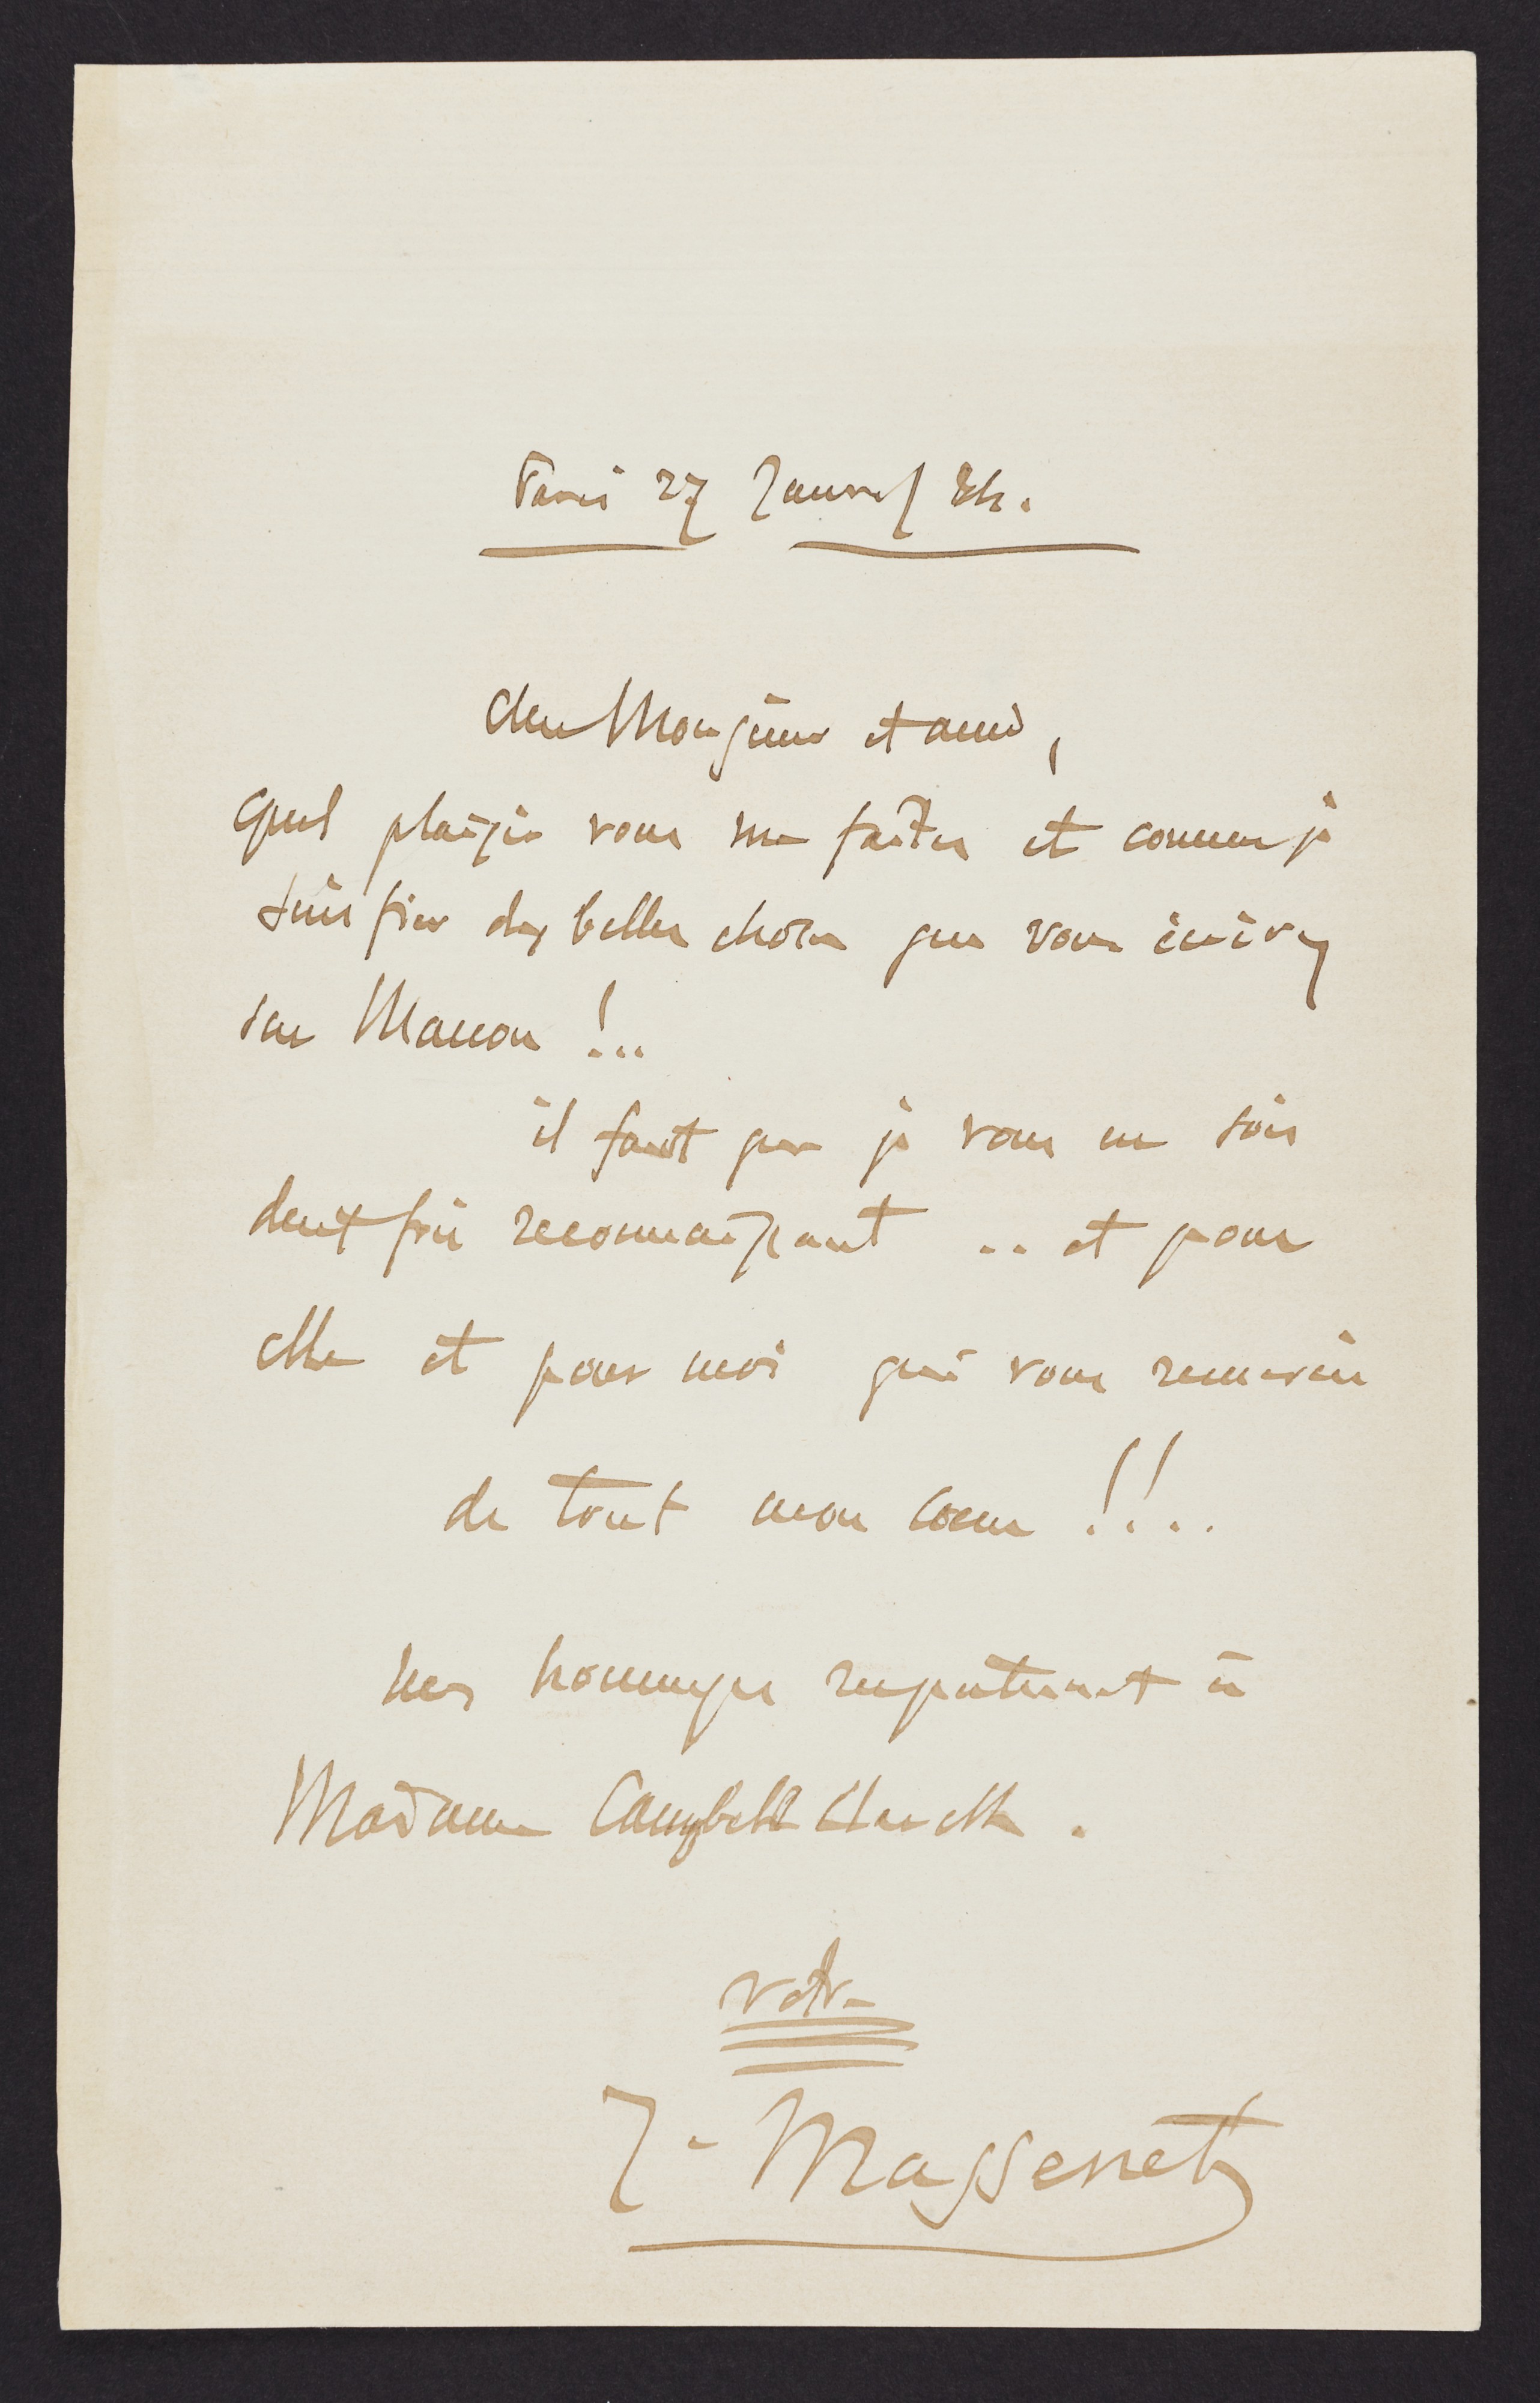 Paris 27 Janvier/84.
Cher Monsieur et ami,
Quel plaisir vous me faites et comme je
suis fier des belles choses que vous écrivez
sur Manon !...
il faut que je vous en sois
deux fois reconnaissant .. et pour
elle et pour moi qui vous remercie
de tout mon coeur !!..
Mes hommages à
Madame Campbell Clarke.
votre
J. Massenet